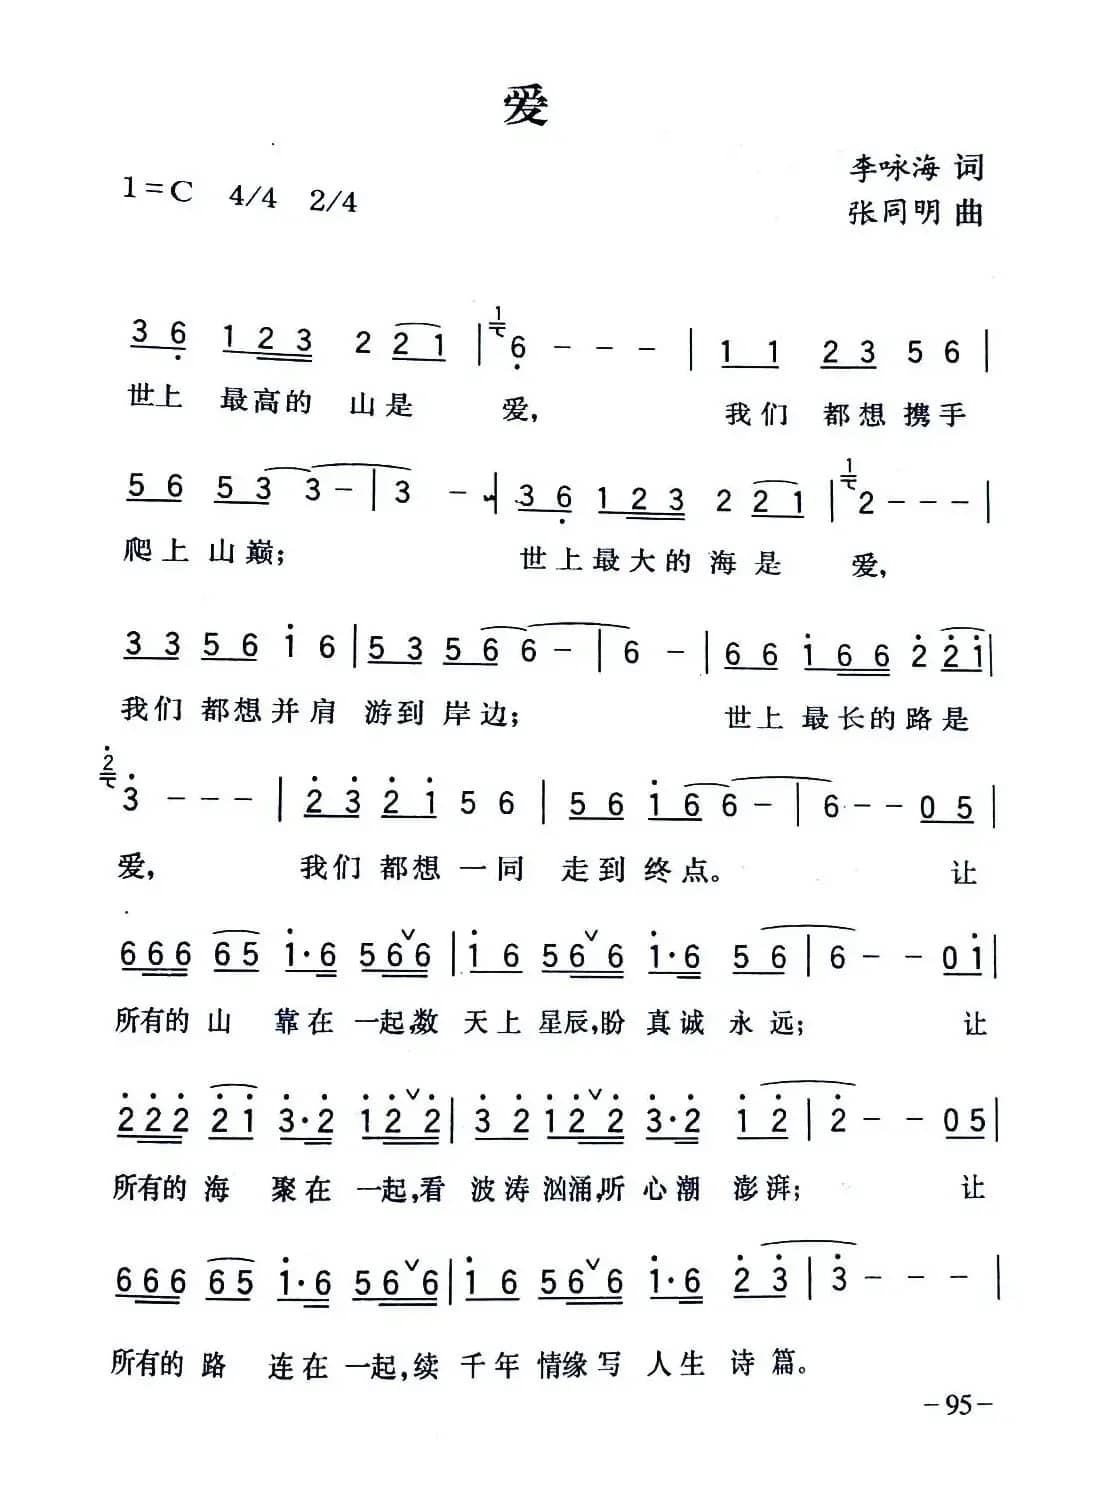 爱
李咏海 词
1=C 4/4 2/4
张同明 曲
3 6 1 2 3 2 2 1 | 1 6 - - - | 1 1 2 3 5 6 |
世上 最高的 山是 爱, 我们 都想 携手
5 6 5 3 3 - | 3 - | 3 6 1 2 3 2 2 1 | 1 2 - - - |
爬上 山巅; 世上最大的 海是 爱,
3 3 5 6 1 6 | 5 3 5 6 6 - | 6 - | 6 6 1 6 6 2 2 1 |
我们 都想并肩 游到 岸边; 世上 最长的路是
2 3 - - - | 2 3 2 1 5 6 | 5 6 1 6 6 - | 6 - - 0 5 |
爱, 我们 都想 一同 走到 终点。 让
6 6 6 6 5 1·6 5 6 ∨ 6 | 1 6 5 6 ∨ 6 1·6 5 6 | 6 - - 0 1 |
所有的 山 靠在 一起,数 天上 星辰,盼 真诚 永远; 让
2 2 2 2 1 3·2 1 2 ∨ 2 | 3 2 1 2 ∨ 2 3·2 1 2 | 2 - - 0 5 |
所有的 海 聚在 一起,看 波涛 汹涌,听 心潮 澎湃; 让
6 6 6 6 5 1·6 5 6 ∨ 6 | 1 6 5 6 ∨ 6 1·6 2 3 | 3 - - - |
所有的 路 连在 一起,续 千年 情缘写 人生 诗篇。
-95-